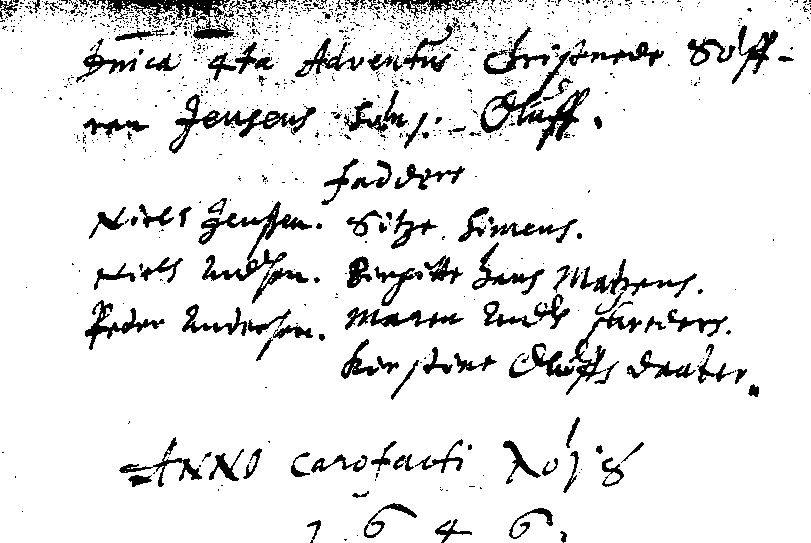 Dnica 4ta Adventus Christnede Söff-
ren Jensens Søn: Oluff.
Faddere
Niels Jenssen. Sitze Simens.
Niels Andersen. Birgitte Hans Matzens.
Peder Andersen. Maren
Kirstine Oluffs daater.
ANNO Carofacti λόγȣ
1 6 4 6.